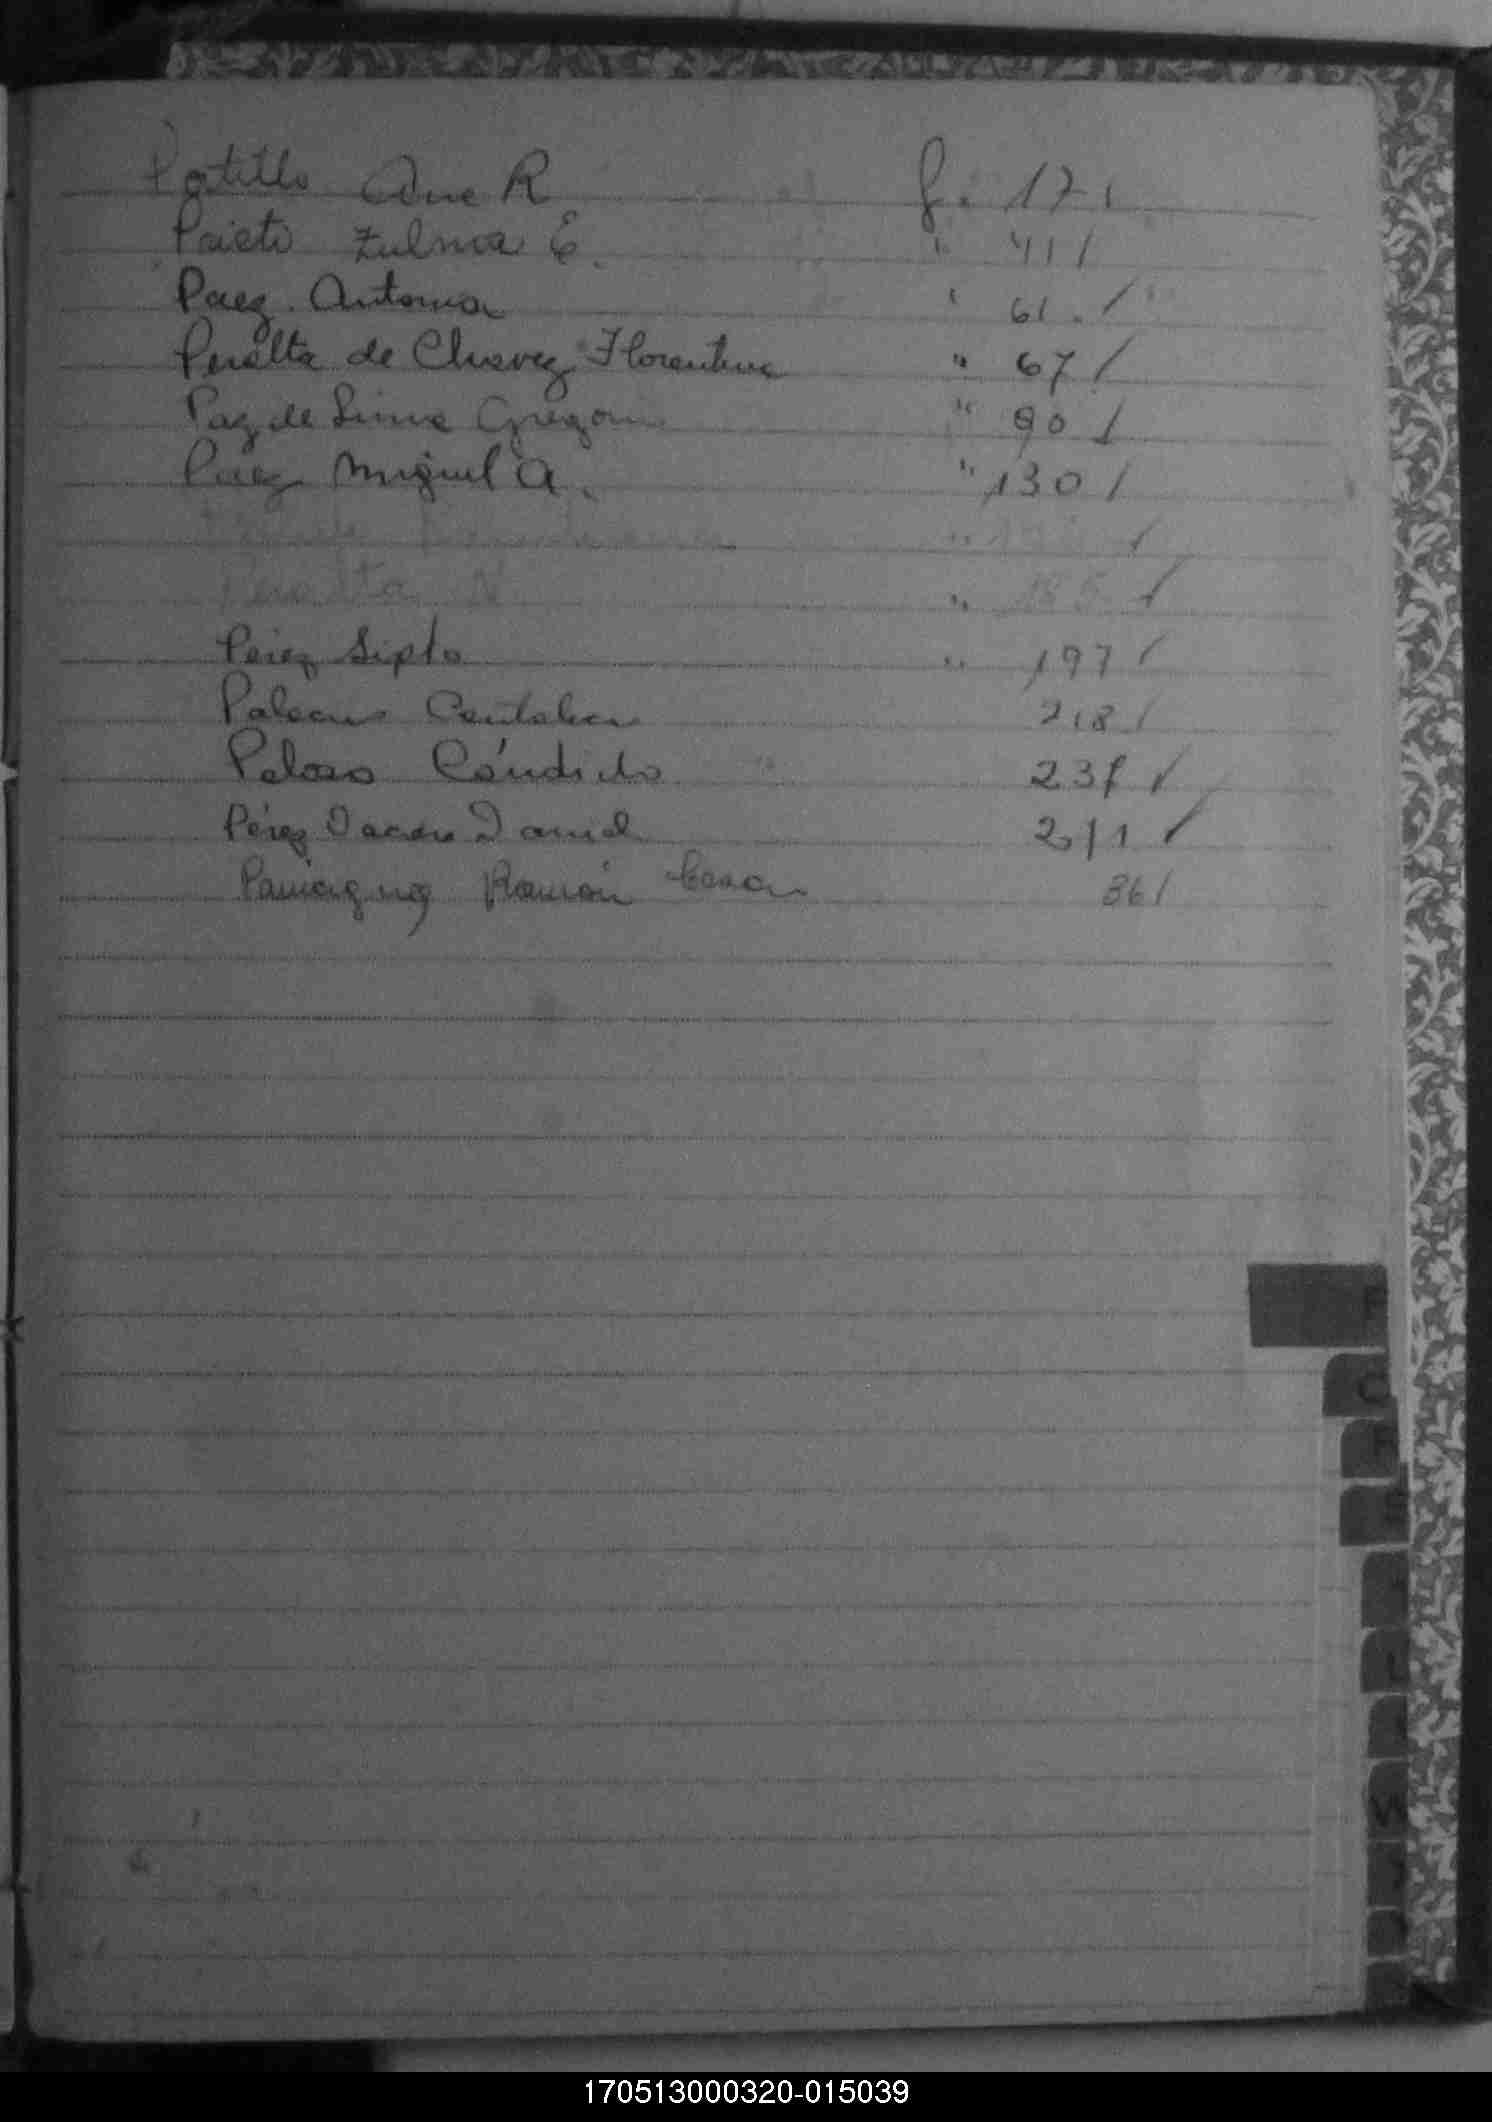 Portillo Ana R f. 17 /
Prieto Zulma E. " 41 /
Paez Antonia " 61. /
Peralta de Chavez Florentina " 67 /
Paz de Lima Gregoria " 90 /
Paez Miguel A. " 130 /
" /
Peralta N " 185 /
Perez Sixto " 197 /
218 /
Peloso Cándido 237 /
Pérez Daniel /
Ramón Cesar 36 /
P
Q
R
S
W
170513000320-015039